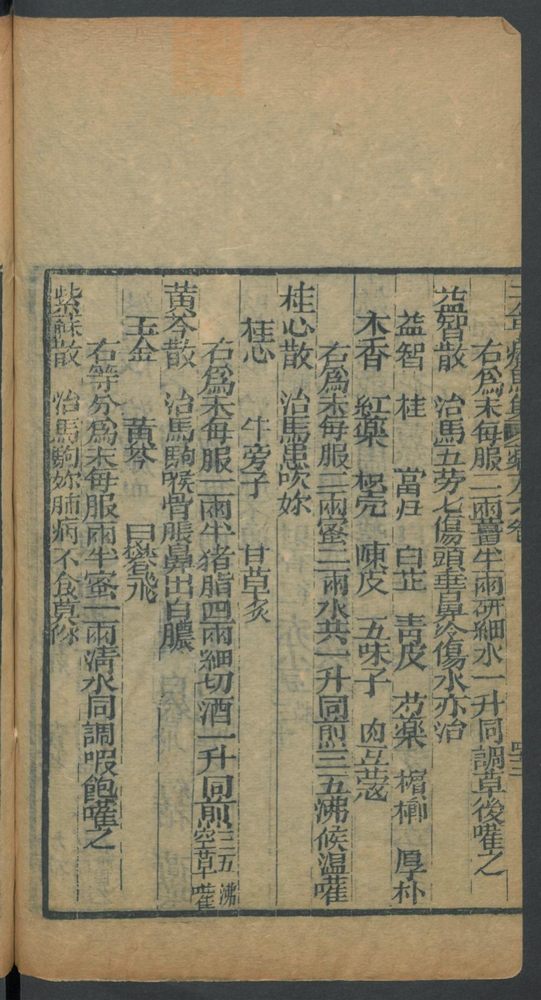 右爲末每服二兩薑半兩研細水一升同調草後嚾之
益智散　治馬五劳七傷頭垂鼻冷傷水亦治
益智　桂　當归　白芷　青皮　芍藥　檳榔　厚朴
木香　紅藥　枳壳　陳皮　五味子　肉豆蔻
右爲末每服三兩蜜二兩水共一升同煎三五沸候温嚾
桂心散　治馬患吹妳
桂心　牛旁子　甘草炙
右爲末每服一兩半猪脂四兩細切酒一升同煎三五沸空草嚾
黄芩散　治馬駒喉骨脹鼻出白膿
玉金　黄芩　白礬飛
右等分爲末每服一兩半蜜二兩清水同調啖飽嚾之
紫蘇散　治馬駒妳肺病不食莫